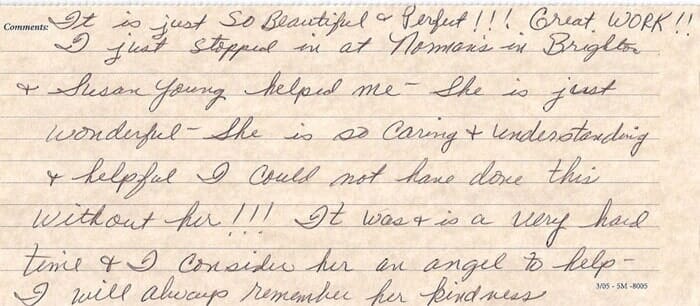 Comments: It is just So Beautiful & Perfect!!! Great WORK!!
I just stopped in at Norman's in Brighton
& Susan Young helped me - She is just
wonderful - She is so caring & understanding
& helpful I could not have done this
without her!!! It was & is a very hard
time & I consider her an angel to help -
3/05 - 5M - 8005
I will always remember her kindness